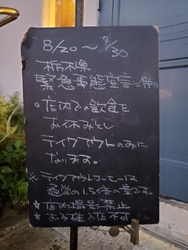 8/20～9/30
栃木県
緊急事態宣言に伴い
・店内での飲食を
お休みとし
テイクアウトのみに
なります。
※テイクアウトコーヒーは
通常の1.5倍の量です。
★店内撮影禁止
★お子様入店不可